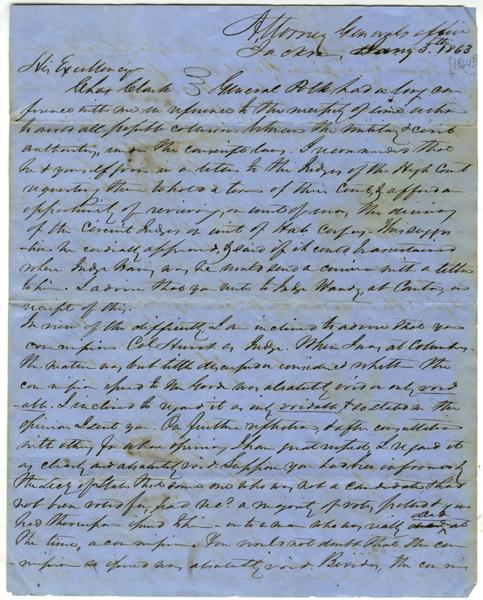 Attorney General's office
Jackson, Jany 5th 1863
[1864?]
His Excellency
Chas Clark. General Polk had a long con
ference with me in reference to the necessity of some action
to avoid all possible collision between the Military & civil
authority, under the conscript law. I recommended that
he & yourself join in a letter to the Judges of the High Court
requesting them to hold a term of their Court, & afford an
opportunity of reviewing, on writ of error, the decisions
of the Circuit Judges on writs of Habeas Corpus. This sugges
tion he cordially approved, & said if it could be ascertained
where Judge Handy was, he would send a courier with a letter
to him. I advise that you write to Judge Handy, at Canton, on
receipt of this.
In view of the difficulty, I am inclined to advise that you
commission Col Hurst as Judge. When I was at Columbus
the matter was but little discussed or considered whether the
commission issued to Mr Wood was absolutely void or only void
able. I inclined to regard it as only voidable, & so stated in the
opinion I sent you. On further reflection, & after consultation
with others for whose opinions I have great respect, I regard it
as clearly and absolutely void. Suppose you had been informed by
the Secy of State that some one who was not a candidate & had
not been voted for, had recd a majority of votes polled, & you
had thereupon issued to him - or to a man who was really dead at
the time, a commission. You would not doubt that the com
mission so issued was absolutely void. Besides, the commis